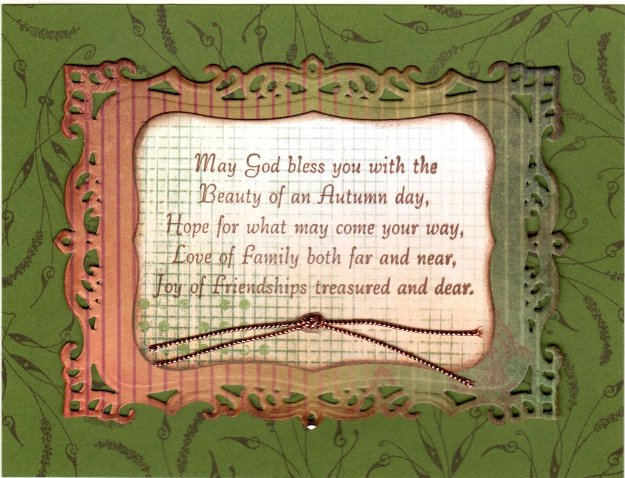 May God bless you with the
Beauty of an Autumn day,
Hope for what may come your way,
Love of Family both far and near,
Joy of Friendships treasured and dear.